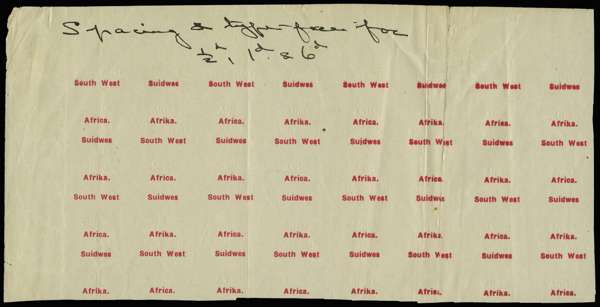 Spacing & type-face for
½d, 1d. & 6d
South West Suidwes South West Suidwes South West Suidwes South West Suidwes
Africa. Afrika. Africa. Afrika. Africa. Afrika. Africa. Afrika.
Suidwes South West Suidwes South West Suidwes South West Suidwes South West
Afrika. Africa. Afrika. Africa. Afrika. Africa. Afrika. Africa.
South West Suidwes South West Suidwes South West Suidwes South West Suidwes
Africa. Afrika. Africa. Afrika. Africa. Afrika. Africa. Afrika.
Suidwes South West Suidwes South West Suidwes South West Suidwes South West
Afrika. Africa. Afrika. Africa. Afrika. Africa. Afrika. Africa.